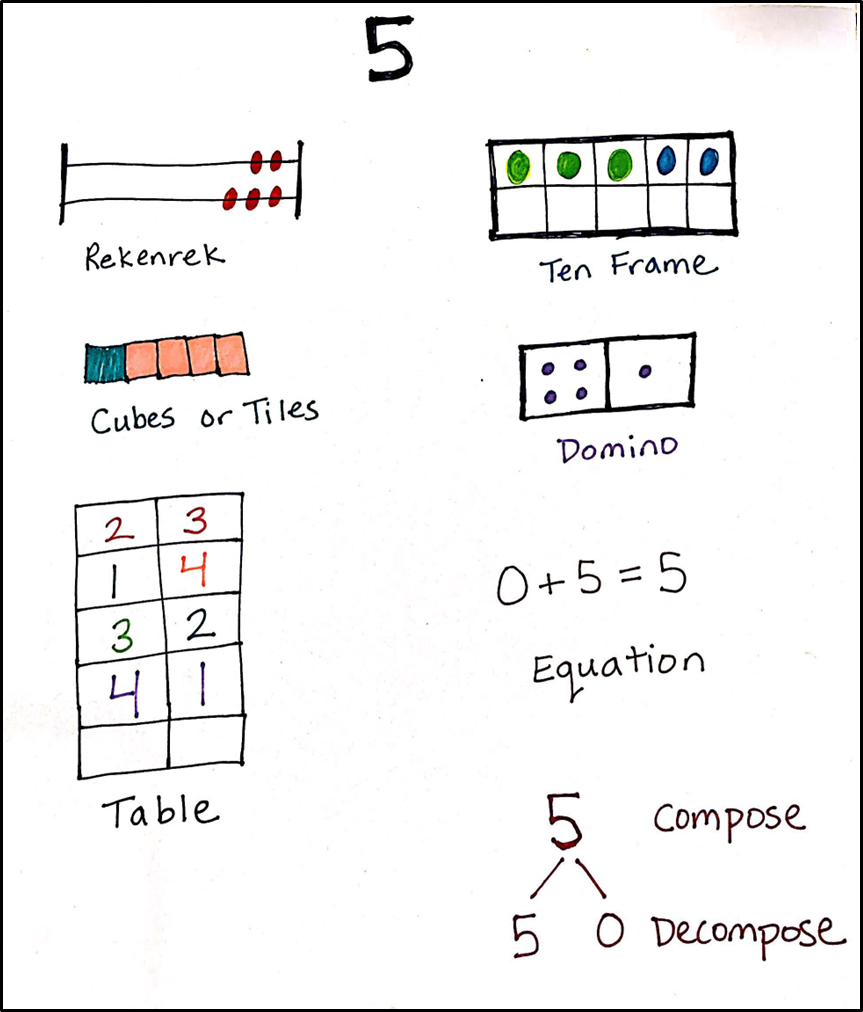 5
Rekenrek
Ten Frame
Cubes or Tiles
Domino
2 3
1 4
3 2
4 1
Table
0 + 5 = 5
Equation
5 Compose
5 0 Decompose